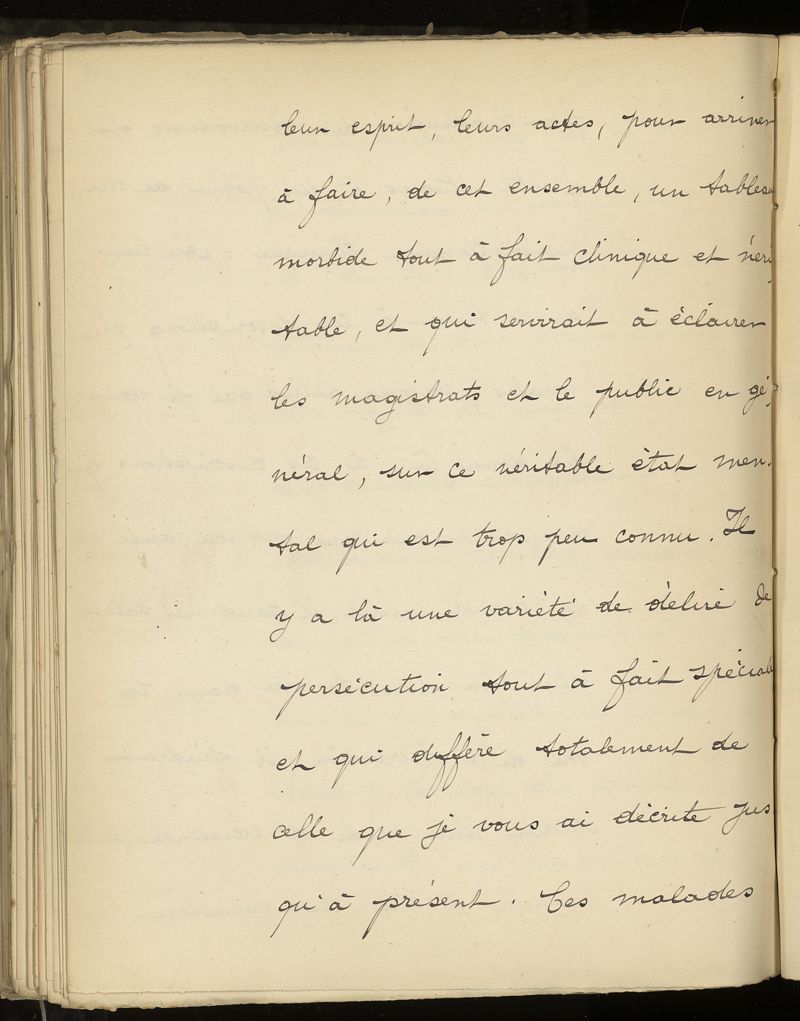 leur esprit, leurs actes, pour arriver
à faire, de cet ensemble, un tableau
morbide tout à fait clinique et véri
table, et qui servirait à éclairer
les magistrats et le public en gé,
néral, sur ce véritable état men.
tal qui est trop peu connu. Il
y a là une variété de délire de
persécution tout à fait spéciale
et qui diffère totalement de
celle que je vous ai décrite jus
qu'à présent. Ces malades